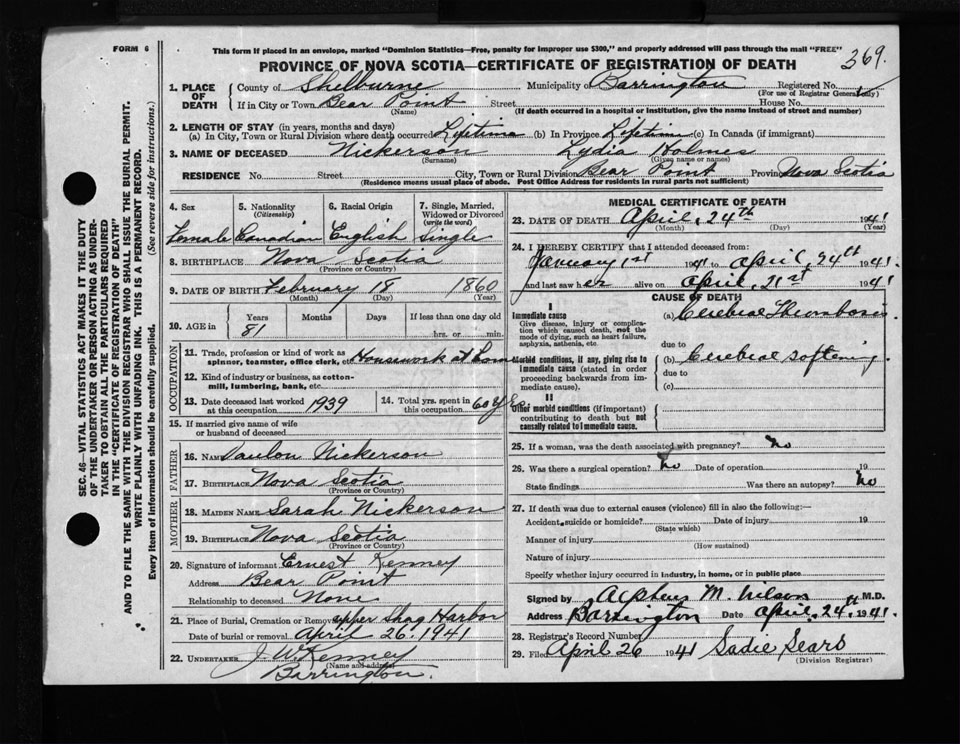 FORM 6
This form if placed in an envelope, marked "Dominion Statistics—Free, penalty for improper use $300," and properly addressed will pass through the mail "FREE"
369.
PROVINCE OF NOVA SCOTIA—CERTIFICATE OF REGISTRATION OF DEATH
1. PLACE OF DEATH
County of Shelburne Municipality of Barrington Registered No.
(For use of Registrar General only)
If in City or Town Bear Point Street House No.
(Name) (If death occurred in a hospital or institution, give the name instead of street and number)
2. LENGTH OF STAY (in years, months and days)
(a) In City, Town or Rural Division where death occurred Lifetime (b) In Province Lifetime (c) In Canada (if immigrant)
3. NAME OF DECEASED Nickerson Lydia Holmes
(Surname) (Given name or names)
RESIDENCE No. Street City, Town or Rural Division Bear Point Province Nova Scotia
(Residence means usual place of abode. Post Office Address for residents in rural parts not sufficient)
4. Sex 5. Nationality (Citizenship) 6. Racial Origin 7. Single, Married, Widowed or Divorced (write the word)
Female Canadian English Single
8. BIRTHPLACE Nova Scotia
(Province or Country)
9. DATE OF BIRTH February 18 1860
(Month) (Day) (Year)
10. AGE in Years Months Days If less than one day old
81 hrs. or min.
OCCUPATION
11. Trade, profession or kind of work as spinner, teamster, office clerk, etc. Housework at home
12. Kind of industry or business, as cotton-mill, lumbering, bank, etc.
13. Date deceased last worked at this occupation 1939
14. Total yrs. spent in this occupation 60 yrs.
15. If married give name of wife or husband of deceased
FATHER
16. NAME Nickerson
17. BIRTHPLACE Nova Scotia
(Province or Country)
MOTHER
18. MAIDEN NAME Sarah Nickerson
19. BIRTHPLACE Nova Scotia
(Province or Country)
20. Signature of informant Ernest Kenney
Address Bear Point
Relationship to deceased None
21. Place of Burial, Cremation or Removal Upper Shag Harbor
Date of burial or removal April 26, 1941
22. UNDERTAKER J. W. Kenney
(Name and address)
Barrington.
MEDICAL CERTIFICATE OF DEATH
23. DATE OF DEATH April, 24th 1941
(Month) (Day) (Year)
24. I HEREBY CERTIFY that I attended deceased from:
January 1st 1941 to April, 24th 1941.
and last saw her alive on April, 21st 1941
CAUSE OF DEATH
I
Immediate cause
Give disease, injury or complication which caused death, not the mode of dying, such as heart failure, asphyxia, asthenia, etc.
(a) Cerebral Thrombosis
due to
Morbid conditions, if any, giving rise to immediate cause (stated in order proceeding backwards from immediate cause).
(b) Cerebral softening.
due to
(c)
II
Other morbid conditions (if important) contributing to death but not causally related to immediate cause.
25. If a woman, was the death associated with pregnancy? no
26. Was there a surgical operation? no Date of operation 19
State findings Was there an autopsy? no
27. If death was due to external causes (violence) fill in also the following:—
Accident, suicide or homicide? Date of injury 19
(State which)
Manner of injury
(How sustained)
Nature of injury
Specify whether injury occurred in industry, in home, or in public place
Signed by Alpheus M. Wilson M.D.
Address Barrington Date April, 24th 1941.
28. Registrar's Record Number
29. Filed April 26 1941 Sadie Sears
(Division Registrar)
SEC. 46—VITAL STATISTICS ACT MAKES IT THE DUTY
OF THE UNDERTAKER OR PERSON ACTING AS UNDER-
TAKER TO OBTAIN ALL THE PARTICULARS REQUIRED
IN THE "CERTIFICATE OF REGISTRATION OF DEATH"
AND TO FILE THE SAME WITH THE DIVISION REGISTRAR WHO SHALL ISSUE THE BURIAL PERMIT.
WRITE PLAINLY WITH UNFADING INK. THIS IS A PERMANENT RECORD.
Every item of information should be carefully supplied. (See reverse side for instructions.)